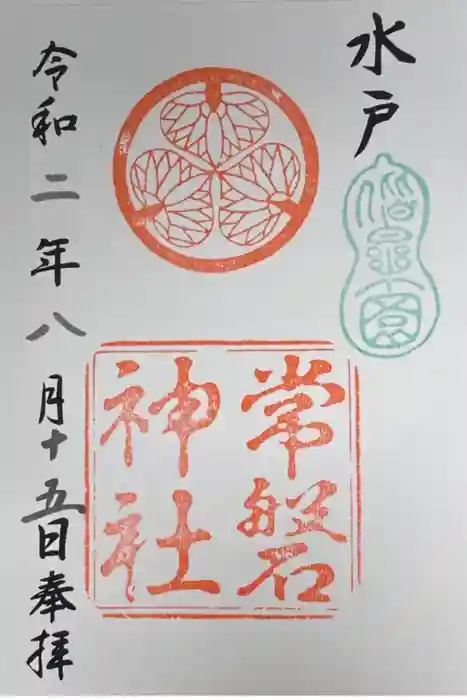 水戸
偕楽園
常磐
神社
令和二年八月十五日奉拝